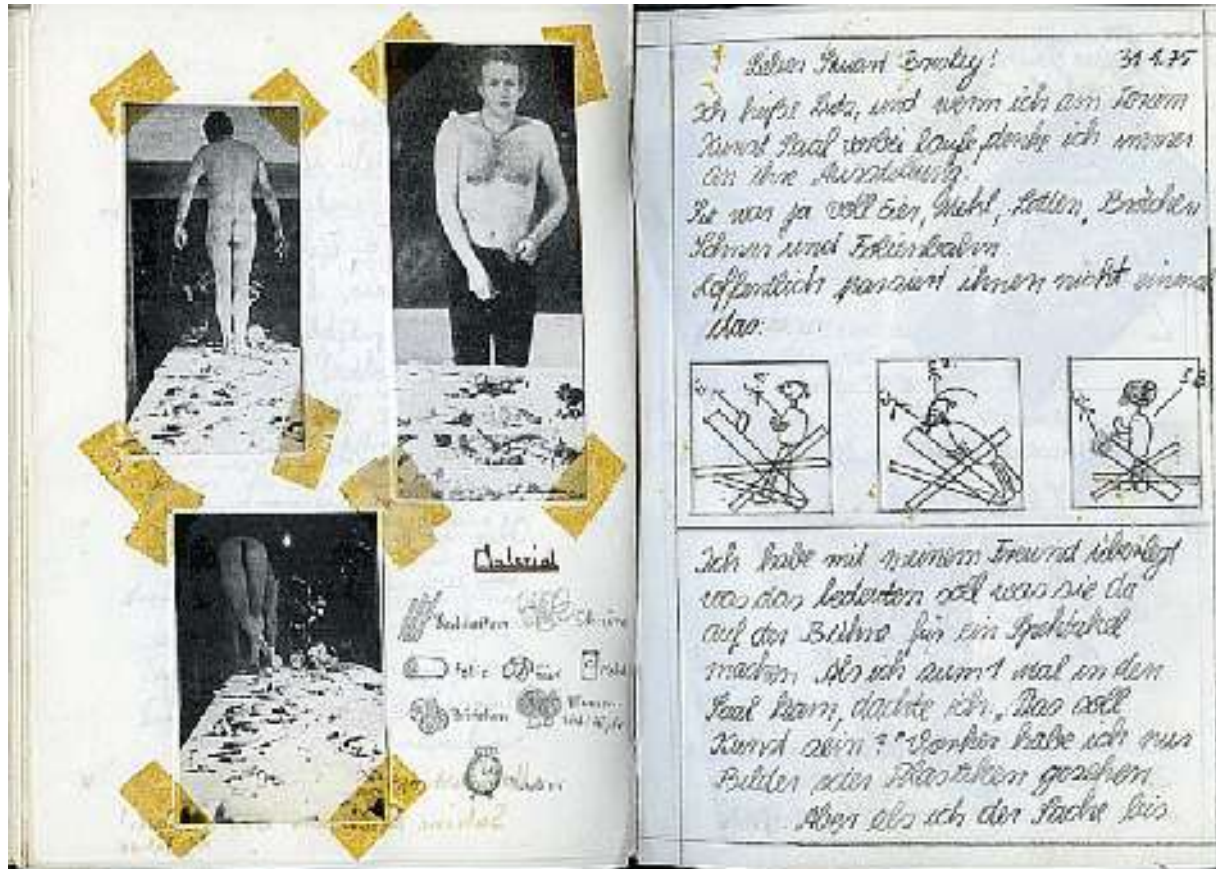 Material
Dachlatten Schnüre
Folie Eier Mehl
Brötchen
Lieber Stuart Brisley! 31.1.75
Ich heiße und wenn ich am Forum
Kunst Saal vorbei laufe, denke ich immer
an ihre Ausstellung.
Sie war ja voll Eier, Mehl, Latten, Brötchen
Schnur und Folienbahn.
Hoffentlich passiert ihnen nicht einmal
das:
Ich habe mit meinem Freund überlegt
was das bedeuten soll was sie da
auf der Bühne für ein Spektakel
machen. Als ich zum 1 mal in den
Saal kam, dachte ich „Das soll
Kunst sein?" Vorher habe ich nur
Bilder oder Plastiken gesehen.
Aber als ich der Sache bis